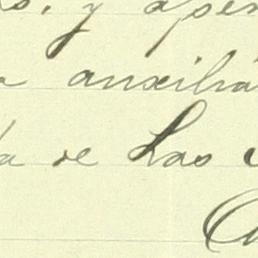 s, y ape
a auxilia
da de Las